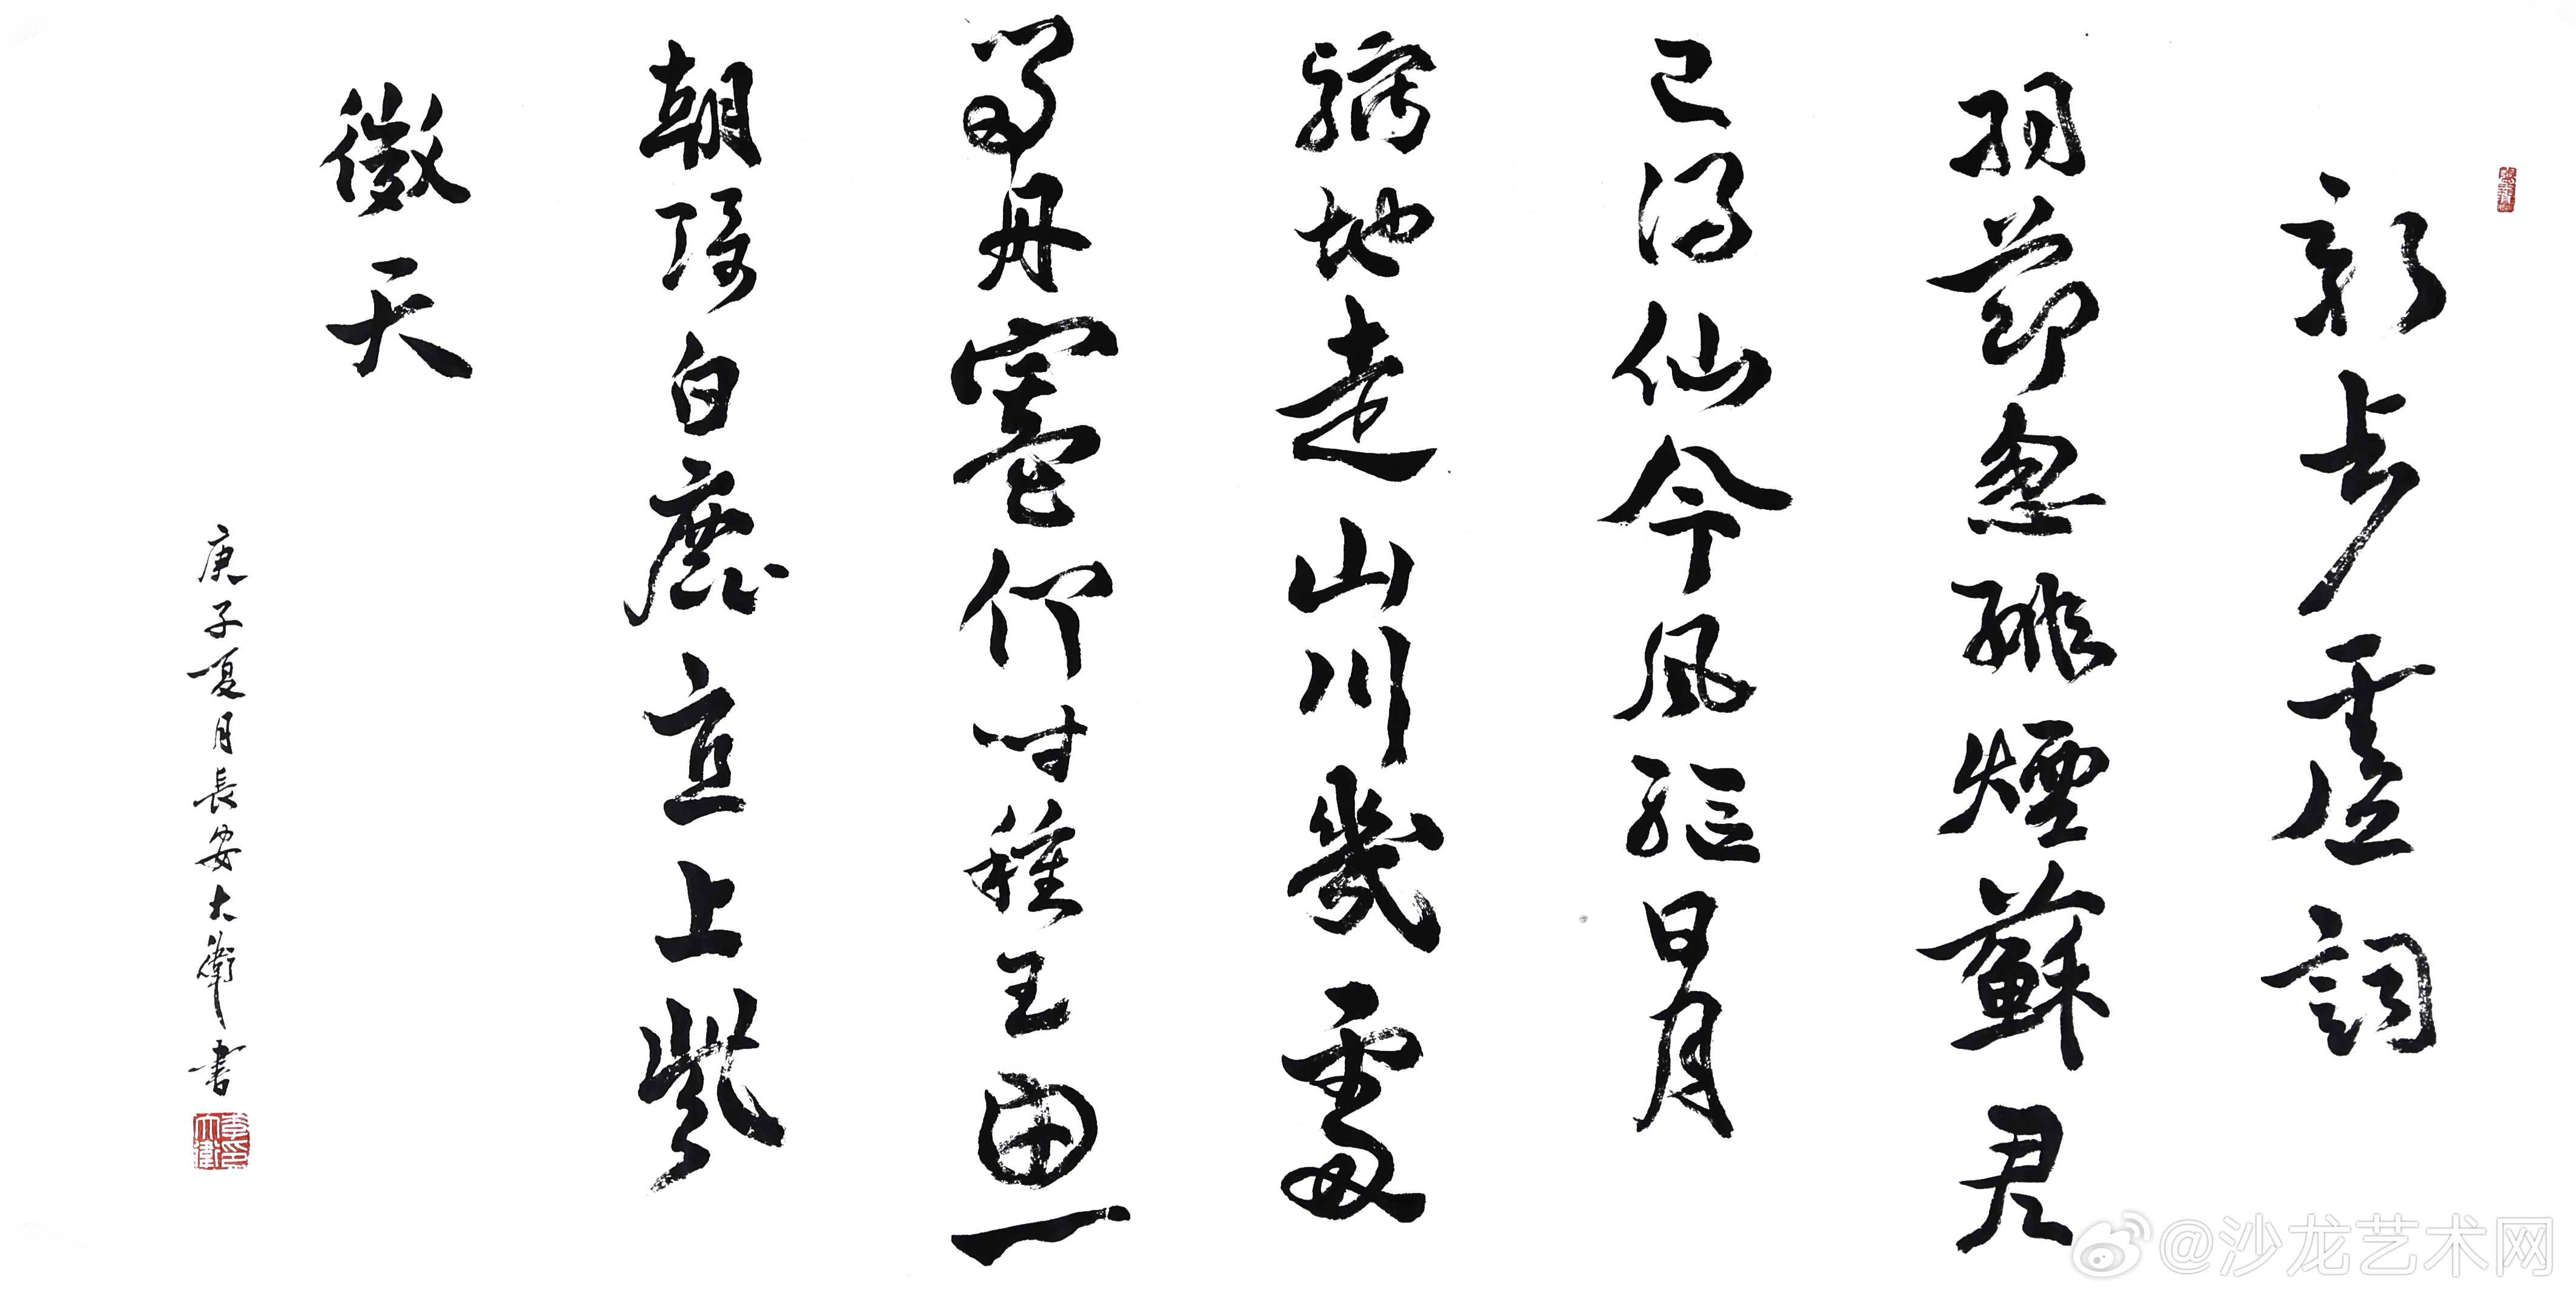 新步虛詞
羽節忽排煙蘇君
已得仙今風驅日月
縮地走山川幾處
留丹竈何時種玉田一
朝騎白鹿直上紫
微天
庚子夏月長安大衛書
@沙龙艺术网